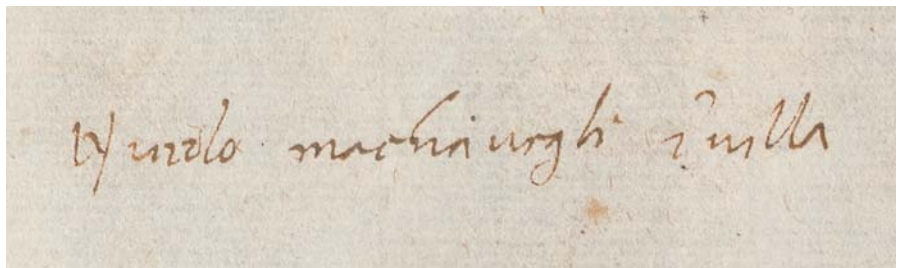 Niccolo machiauegli ī uilla